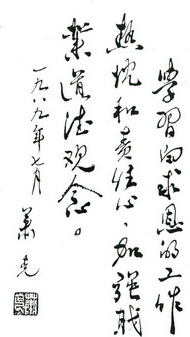 学習白求恩的工作
熱忱和責任心，加强職
業道德观念。
一九八九年七月
萧克